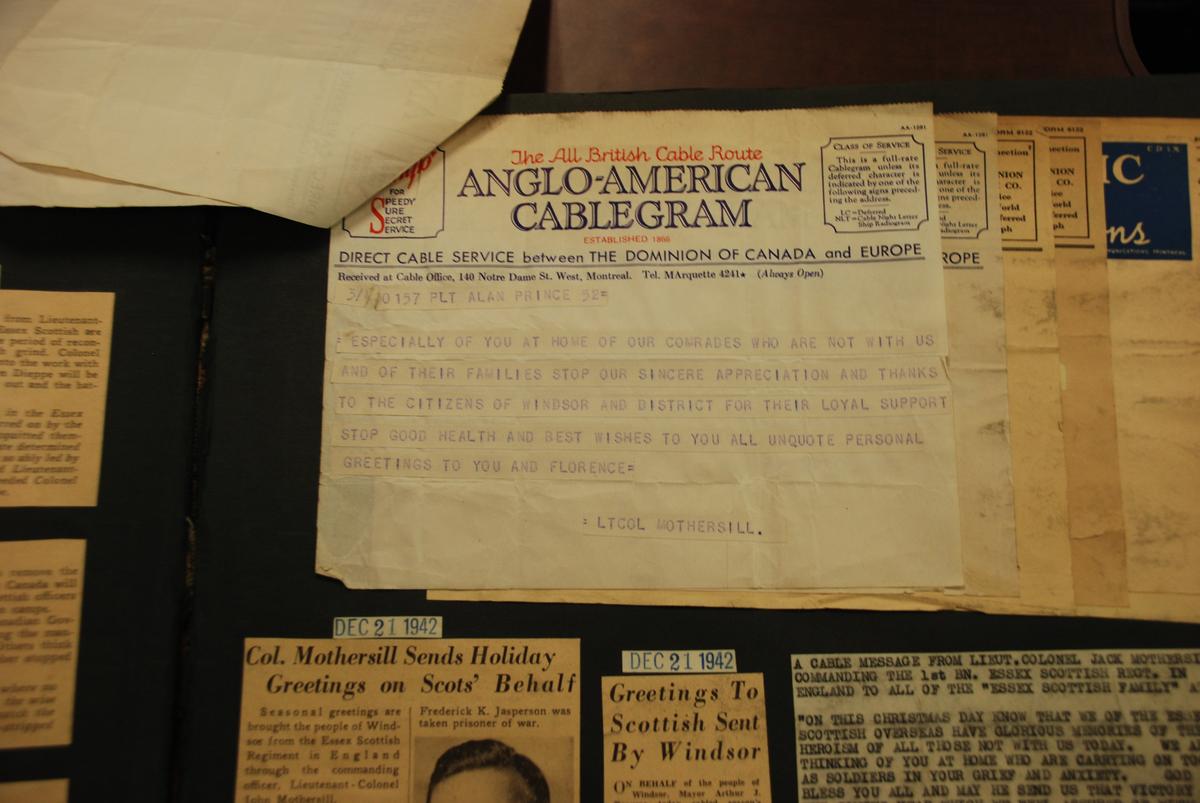 The All British Cable Route
ANGLO-AMERICAN
CABLEGRAM
ESTABLISHED 1866
FOR
SPEEDY
SURE
SECRET
SERVICE
AA-1281
CLASS OF SERVICE
This is a full-rate
Cablegram unless its
deferred character is
indicated by one of the
following signs preced-
ing the address.
LC=Deferred
NLT=Cable Night Letter
Ship Radiogram
DIRECT CABLE SERVICE between THE DOMINION OF CANADA and EUROPE
Received at Cable Office, 140 Notre Dame St. West, Montreal. Tel. MArquette 4241★ (Always Open)
0157 PLT ALAN PRINCE 52=
= ESPECIALLY OF YOU AT HOME OF OUR COMRADES WHO ARE NOT WITH US
AND OF THEIR FAMILIES STOP OUR SINCERE APPRECIATION AND THANKS
TO THE CITIZENS OF WINDSOR AND DISTRICT FOR THEIR LOYAL SUPPORT
STOP GOOD HEALTH AND BEST WISHES TO YOU ALL UNQUOTE PERSONAL
GREETINGS TO YOU AND FLORENCE=
= LTCOL MOTHERSILL.
AA-1281
SERVICE
full-rate
unless its
aracter is
one of the
preced-
ROPE
FORM 6122
NION
CO.
FORM 6122
NION
CO.
IC
CDIX
ns
from Lieutenant-
Essex Scottish are
period of recon-
grind. Colonel
into the work with
Dieppe will be
out and the bat-
in the Essex
on by the
Lieutenant-
Colonel
remove the
Canada will
officers
camps.
DEC 21 1942
Col. Mothersill Sends Holiday
Greetings on Scots' Behalf
Seasonal greetings are
brought the people of Wind-
sor from the Essex Scottish
Regiment in England
through the commanding
officer, Lieutenant-Colonel
John Mothersill.
Frederick K. Jasperson was
taken prisoner of war.
DEC 21 1942
Greetings To
Scottish Sent
By Windsor
ON BEHALF of the people of
Windsor, Mayor Arthur J.
A CABLE MESSAGE FROM LIEUT.COLONEL JACK MOTHERSI
COMMANDING THE 1st BN. ESSEX SCOTTISH REGT. IN
ENGLAND TO ALL OF THE "ESSEX SCOTTISH FAMILY" A
"ON THIS CHRISTMAS DAY KNOW THAT WE OF THE ESS
SCOTTISH OVERSEAS HAVE GLORIOUS MEMORIES OF TH
HEROISM OF ALL THOSE NOT WITH US TODAY. WE A
THINKING OF YOU AT HOME WHO ARE CARRYING ON TO
AS SOLDIERS IN YOUR GRIEF AND ANXIETY. GOD
BLESS YOU AND MAY HE SEND US THAT VICTORY